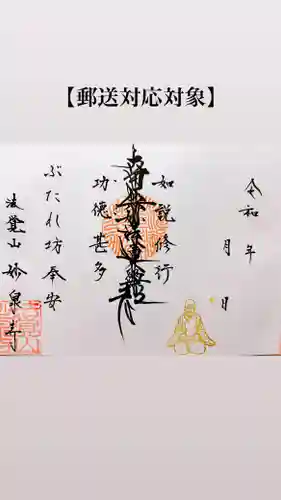 【郵送対応対象】
令和 年 月 日
如説修行
南無妙法蓮華経
功徳甚多
ぶたれ坊奉安
法覚山 妙泉寺